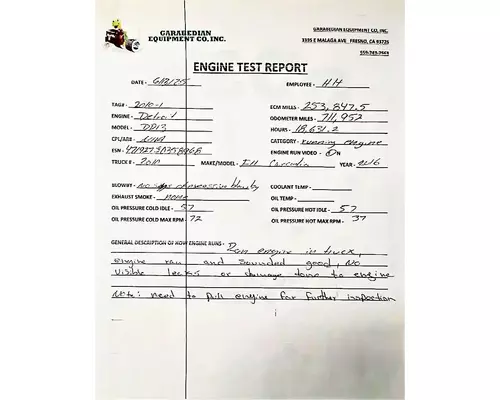 GARABEDIAN EQUIPMENT CO. INC.
GARABEDIAN
EQUIPMENT CO., INC.
3335 E MALAGA AVE FRESNO, CA 93725
ENGINE TEST REPORT
DATE -
EMPLOYEE - HH
TAG# - 2010-1
ECM MILES - 253,847.5
ENGINE - Detroit
ODOMETER MILES - 711,952
MODEL - DD13
HOURS - 18,631.2
CPL/AR# - N/A
CATEGORY - running engine
ESN -
ENGINE RUN VIDEO - Y N
TRUCK # - 2010
MAKE/MODEL - Cascadia
YEAR - 2016
BLOWBY - No signs of excessive blowby
COOLANT TEMP -
EXHAUST SMOKE - none
OIL TEMP -
OIL PRESSURE COLD IDLE - 57
OIL PRESSURE HOT IDLE - 57
OIL PRESSURE COLD MAX RPM - 72
OIL PRESSURE HOT MAX RPM - 37
GENERAL DESCRIPTION OF HOW ENGINE RUNS - Ran engine in truck,
engine ran and sounded good, No
visible leaks or damage down to engine
Note: need to pull engine for further inspection